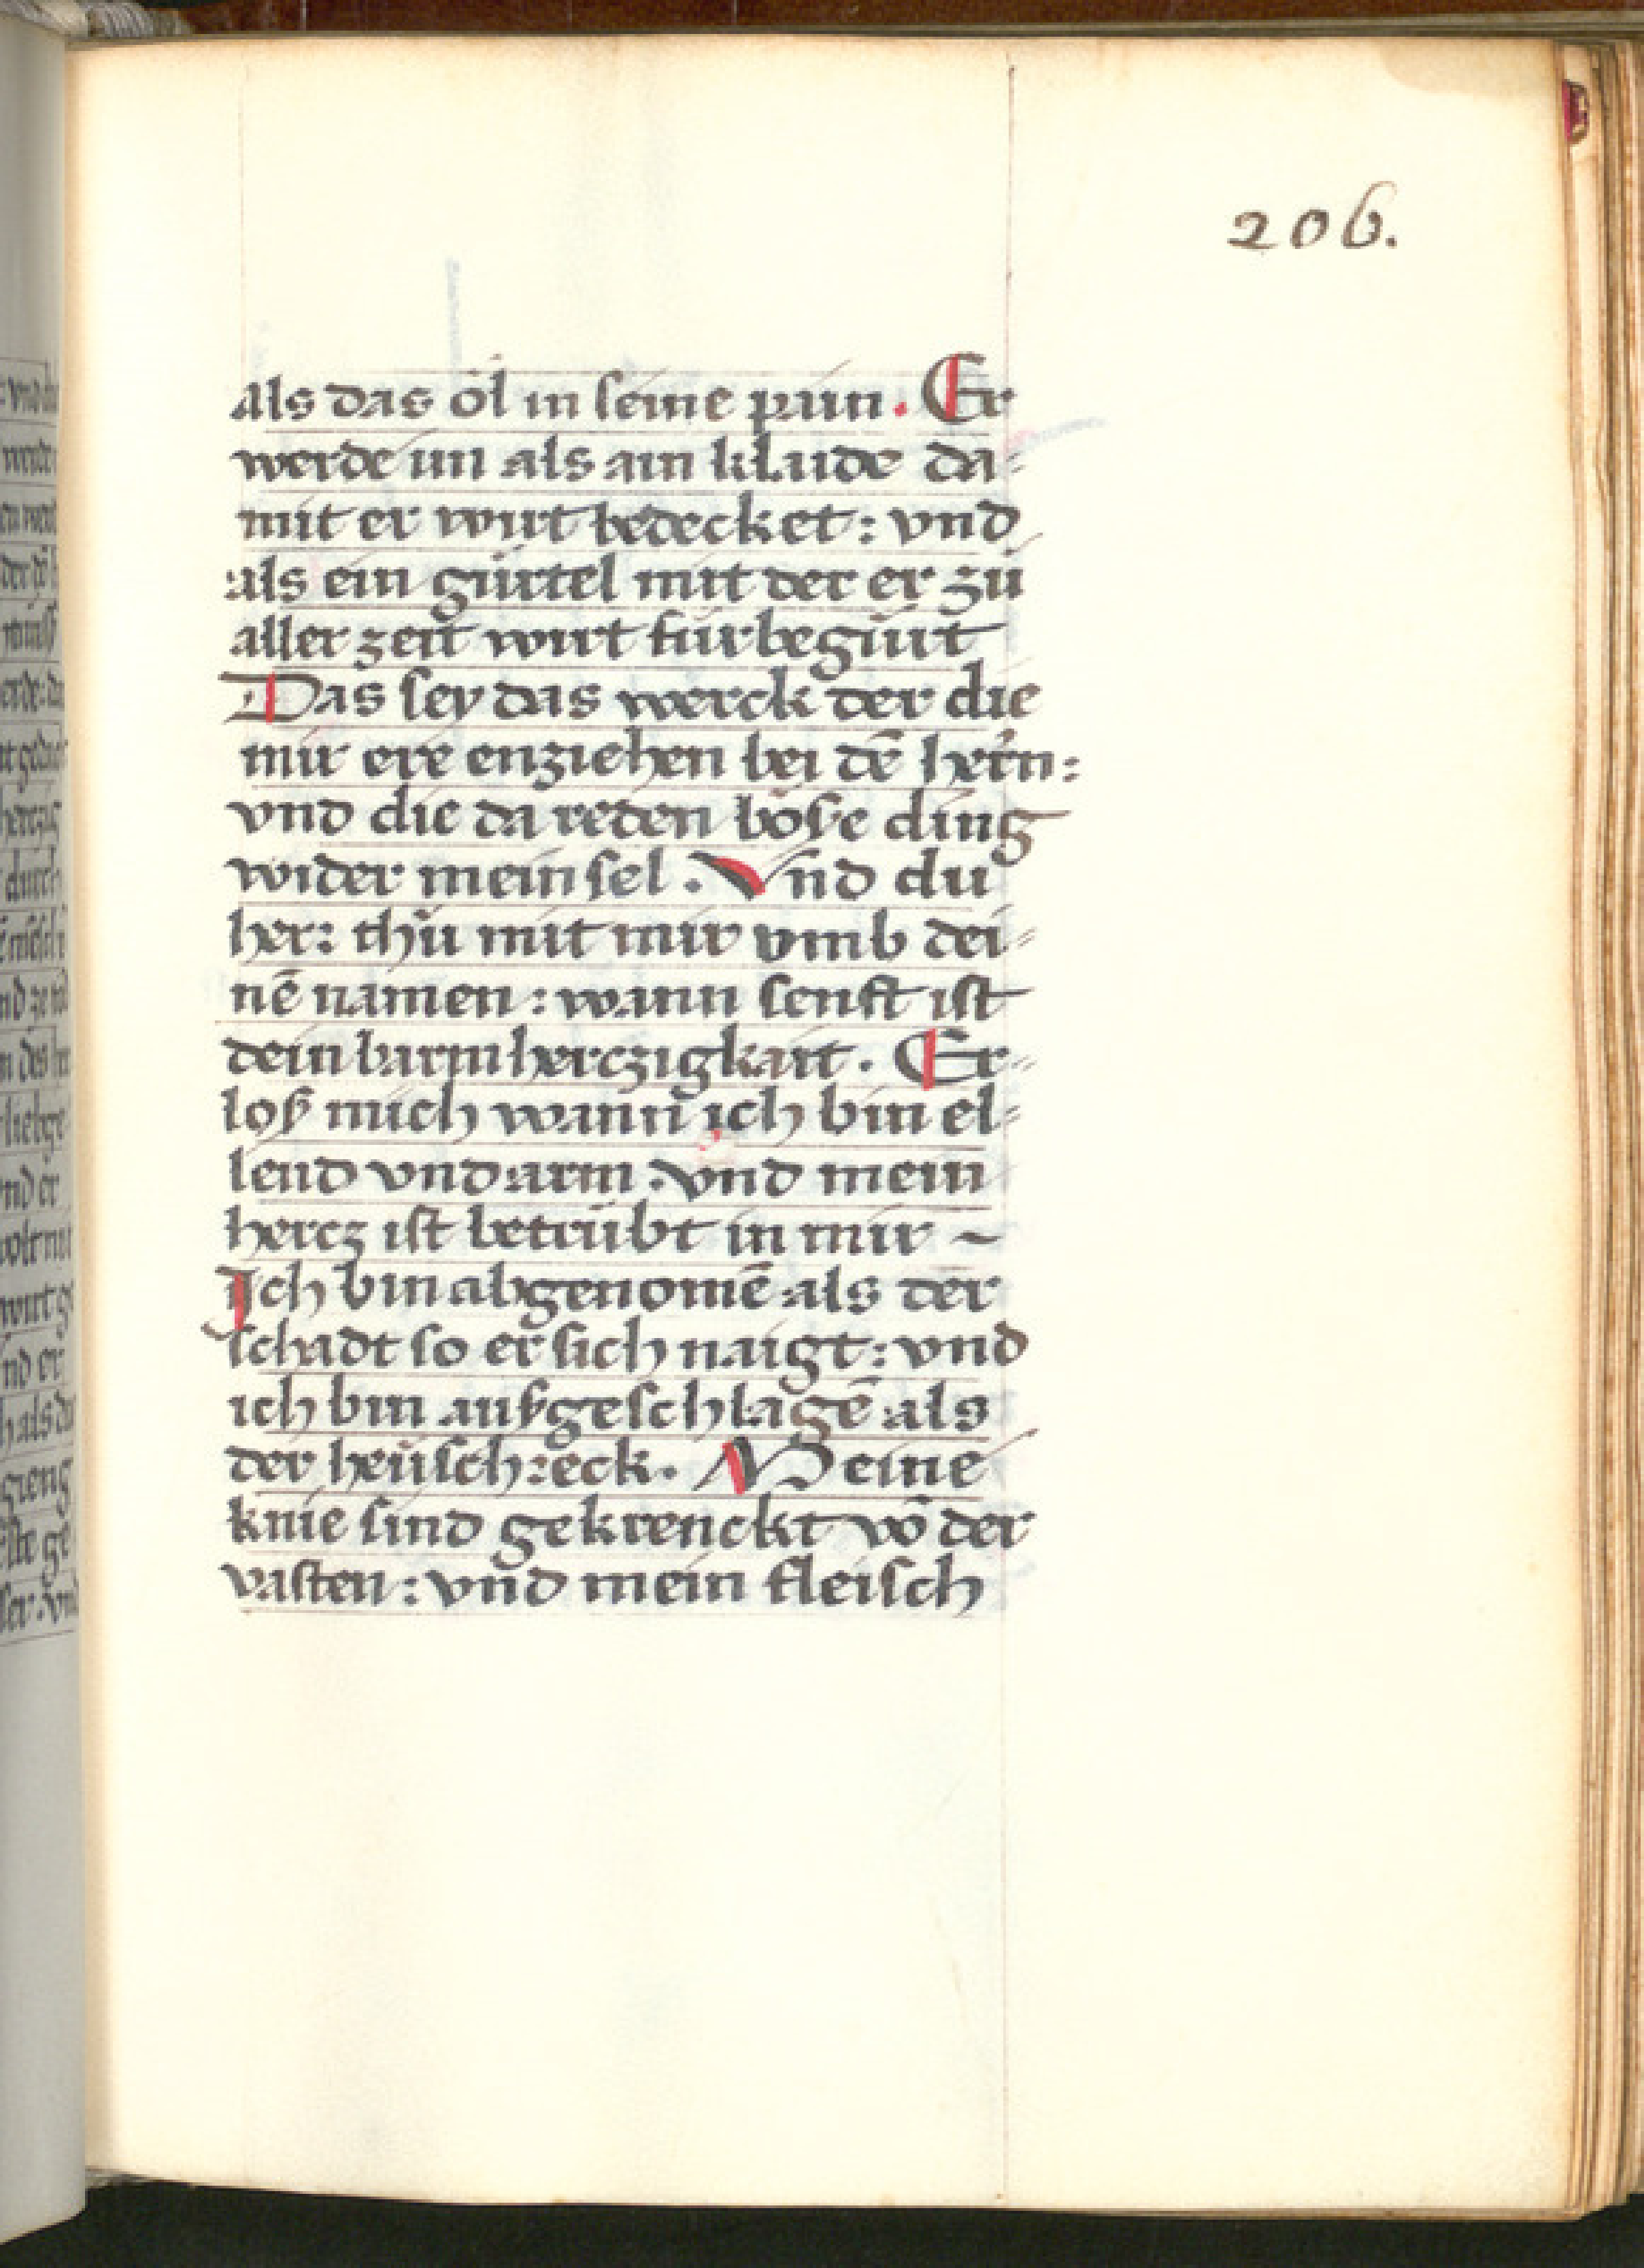 206.
als das öl in seine pain. Er
werde im als ain klaide da=
mit er wirt bedecket: vnd
als ein gürtel mit der er zů
aller zeit wirt fürbegürt
Das sey das werck der die
mir ere enziehen bei dē herrn:
vnd die da reden böse ding
wider mein sel. Vnd du
her: thů mit mir vmb dei=
nē namen: wann senft ist
dein barmherczigkait. Er=
löß mich wann ich bin el=
lend vnd arm: vnd mein
hercz ist betrübt in mir ~
Ich bin abgenomē als der
schadt so er sich naigt: vnd
ich bin außgeschlagē als
der heüschreck. Meine
knie sind gekrenckt vō der
vasten: vnd mein fleisch